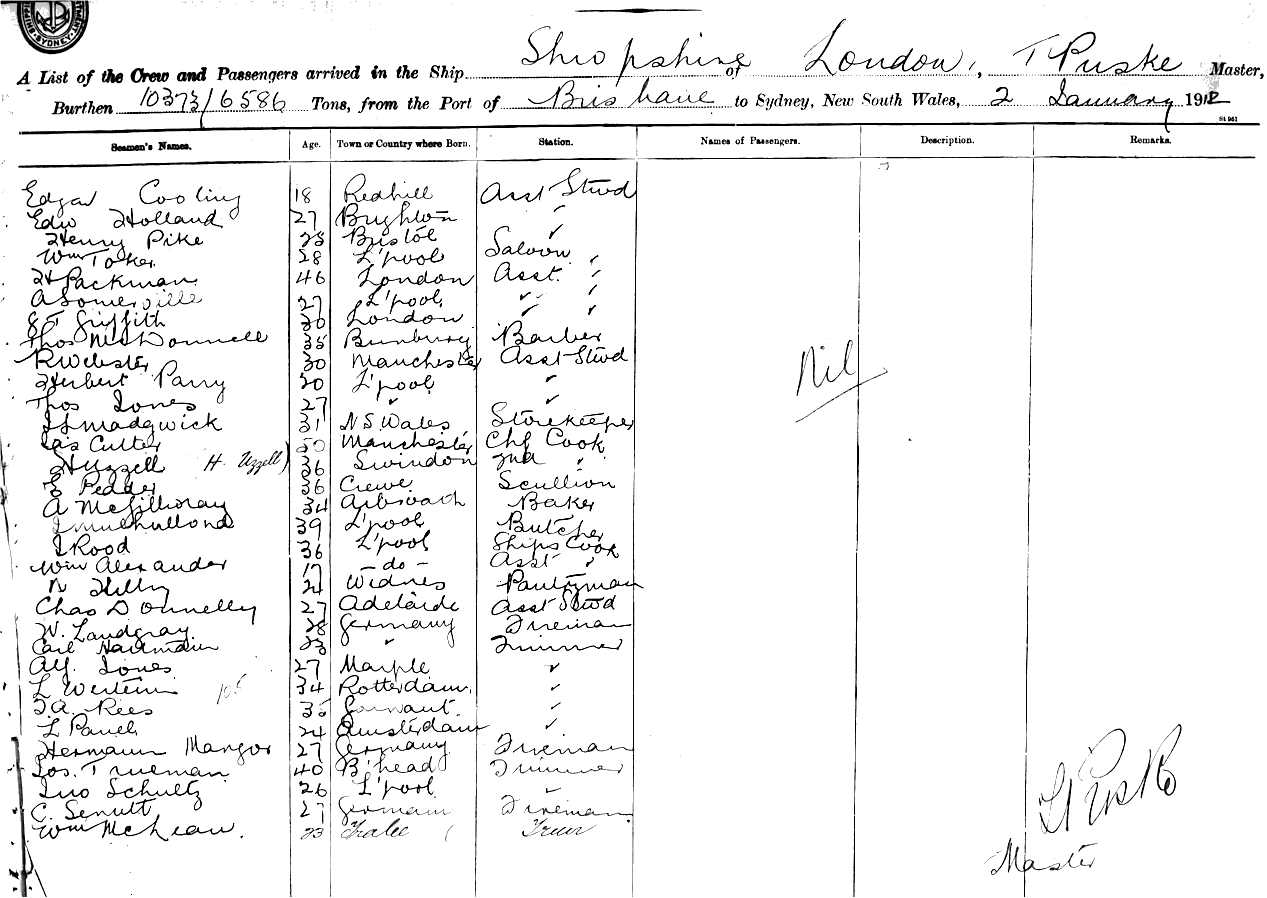 SYDNEY
A List of the Crew and Passengers arrived in the Ship Shropshire of London, T Puske Master,
Burthen 10373/6586 Tons, from the Port of Brisbane to Sydney, New South Wales, 2 January 1912
St 951
Seamen's Names. Age. Town or Country where Born. Station. Names of Passengers. Description. Remarks.
Edgar Cooling 18 Redhill Asst Stwd
Edw Holland 27 Brighton "
Henry Pike 23 Bristol "
Wm Toker 28 L'pool Saloon "
H Packman 46 London Asst. "
A Somerville 27 L'pool " "
S T Griffith 20 London " "
Thos McDonnell 35 Bunbury Barber
R Webster 30 Manchester Asst Stwd
Herbert Parry 20 L'pool "
Thos Jones 27 " "
Nil
Madgwick 31 N.S. Wales Storekeeper
Jas Cutter 50 Manchester Chf Cook
H Uzzell H. Uzzell) 36 Swindon 2nd "
E Pedder 36 Crewe Scullion
A McGillivray 34 Arbroath Baker
J Mulholland 39 L'pool Butcher
J Rood 36 L'pool Ships Cook
Wm Alexander 17 - do - Asst "
N Hilby 24 Widnes Pantryman
Chas Donnelly 27 Adelaide Asst Stwd
W. Landgray 28 Germany Fireman
Carl Hartmann 23 " Trimmer
Alf. Jones 27 Marple "
L Westerin 105 34 Rotterdam "
T A. Rees 35 "
L Panek 24 Amsterdam "
Hermann Mangor 27 Germany Fireman
Jos. Trueman 40 B'head Trimmer
Jno Schultz 26 L'pool "
C. Senutt 27 Germany Fireman
Wm McLean. 23 Tralee Trimr
T Puske
Master